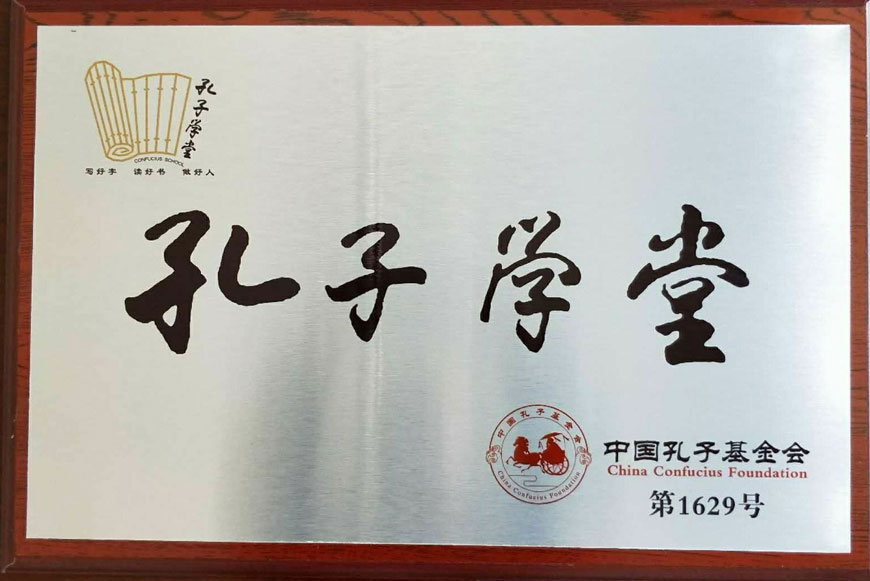 孔子学堂
CONFUCIUS SCHOOL
写好字 读好书 做好人
孔子学堂
中国孔子基金会
China Confucius Foundation
中国孔子基金会
China Confucius Foundation
第1629号